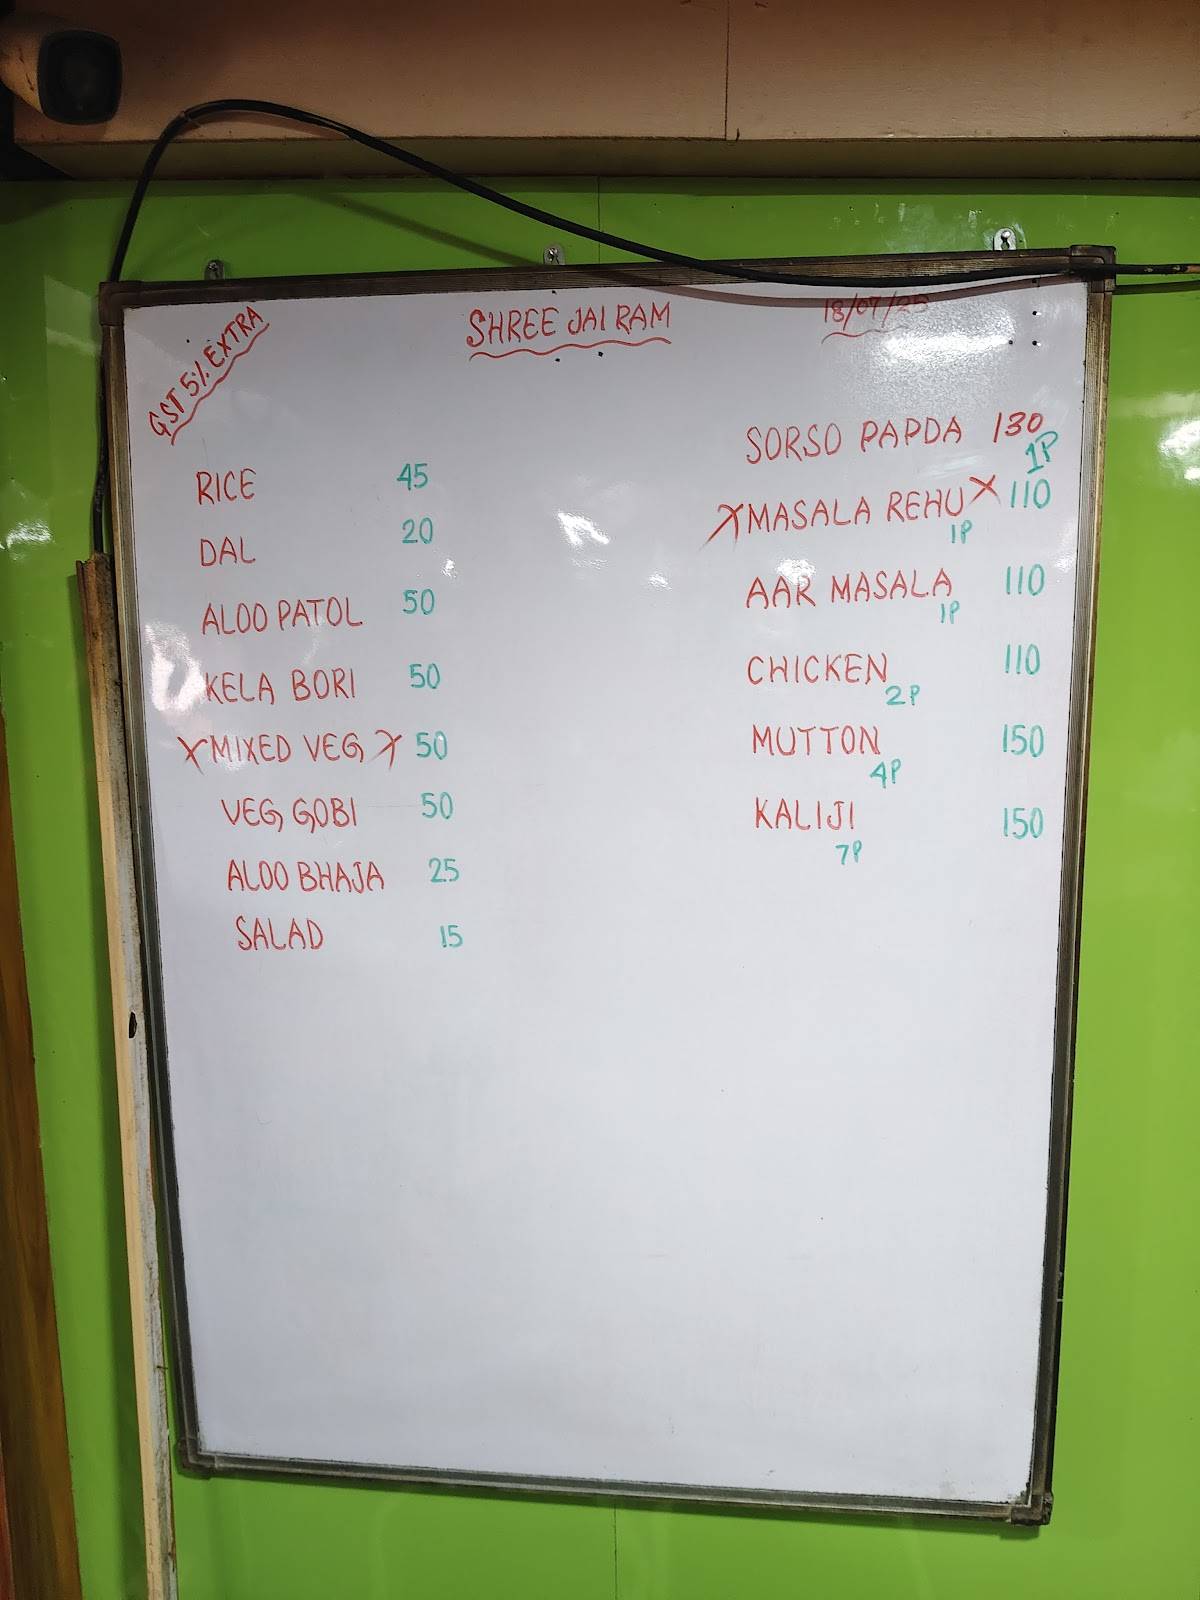 GST 5% EXTRA
SHREE JAI RAM
18/07/25
RICE 45
DAL 20
ALOO PATOL 50
KELA BORI 50
X MIXED VEG X 50
VEG GOBI 50
ALOO BHAJA 25
SALAD 15
SORSO PAPDA 130
1P
X MASALA REHU X 110
1P
AAR MASALA 110
1P
CHICKEN 110
2P
MUTTON 150
4P
KALIJI 150
7P